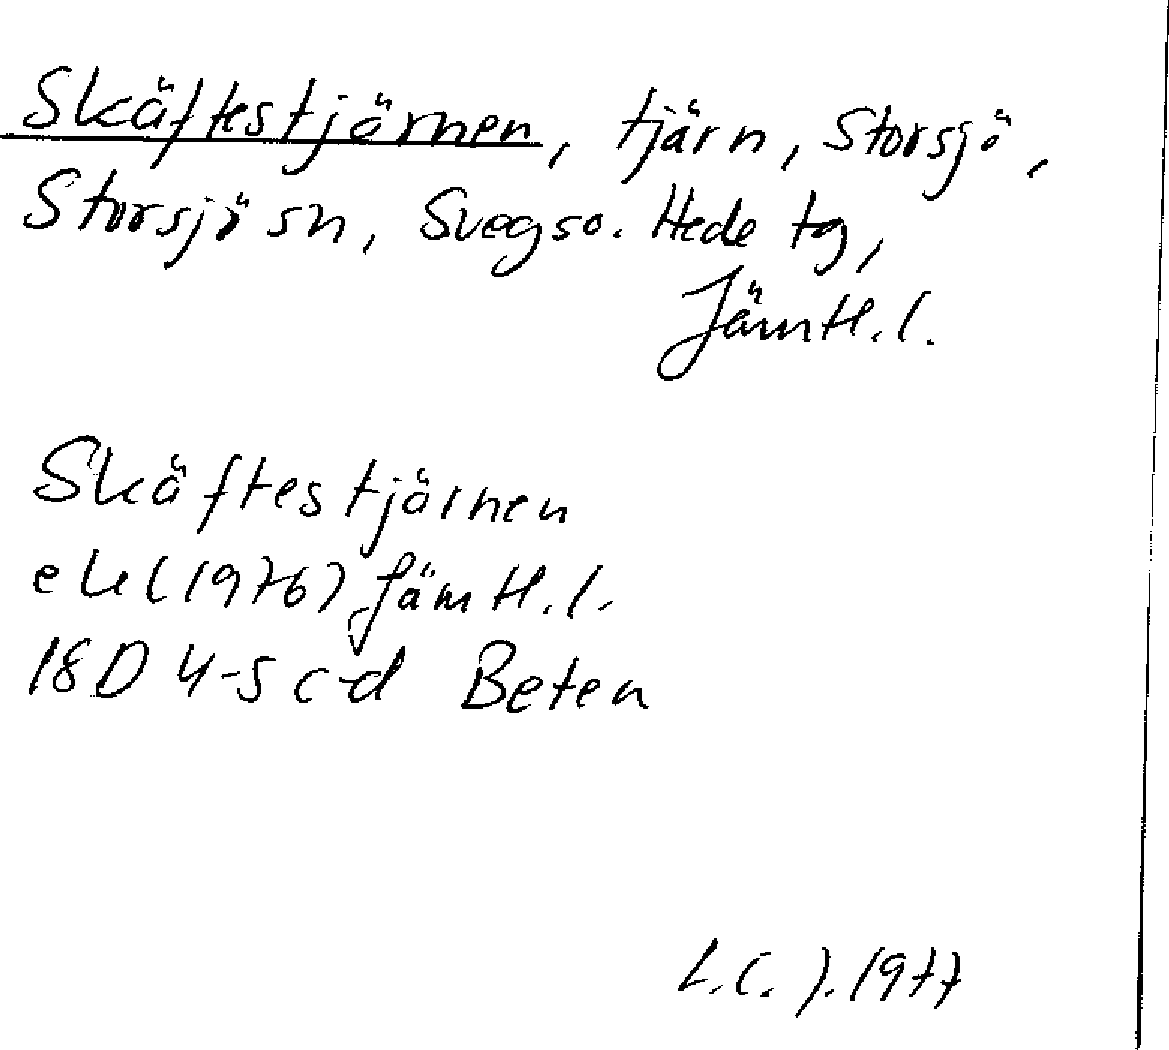 Skäftestjärnen, tjärn, Storsjö,
Storsjö sn, Svegs o. Hede tg,
Jämtl. l.
Skäftestjärnen
ek (1976) Jämtl. l.
18D 4-5 c-d Beten
L.C. J. 1977